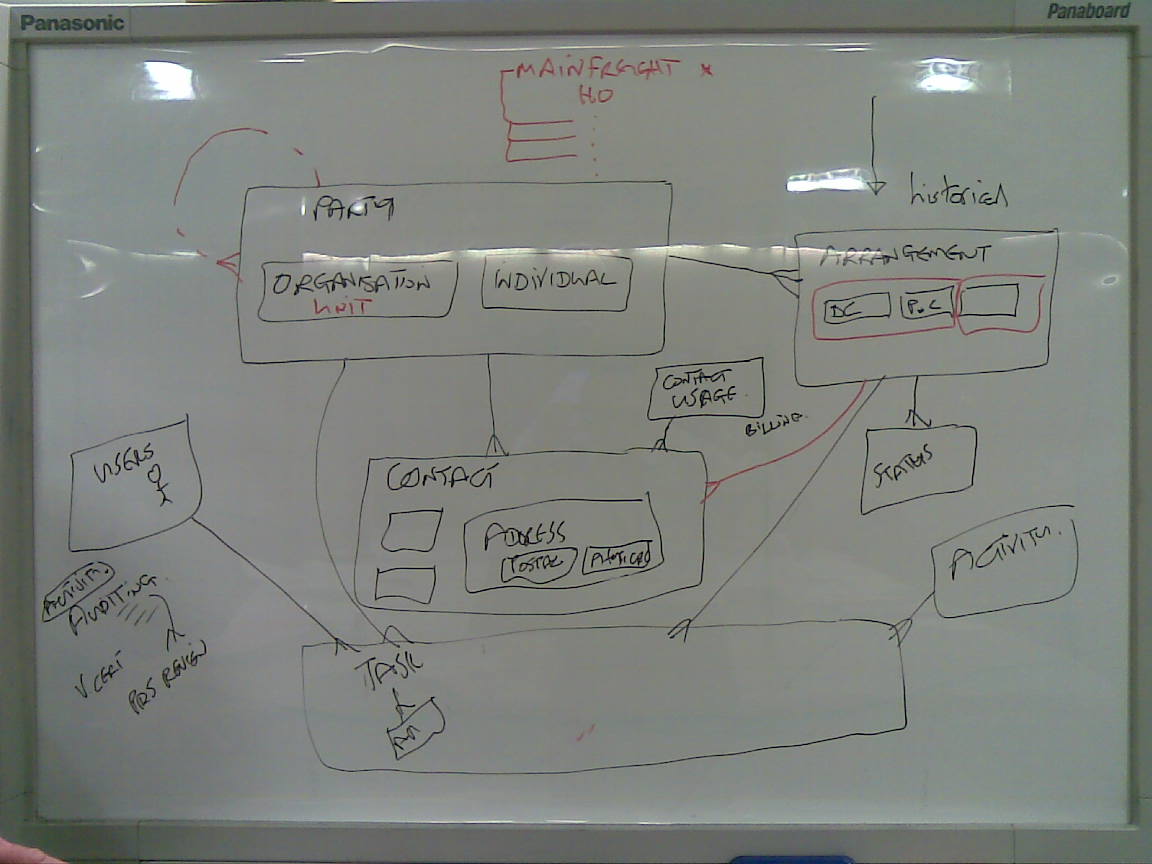 Panasonic
Panaboard
MAINFREIGHT *
HO
historical
PARTY
ARRANGEMENT
ORGANISATION
UNIT
INDIVIDUAL
DC
PoC
CONTACT
USAGE
BILLING
USERS
CONTACT
STATUS
ADDRESS
POSTAL
PHYSICAL
ACTIVITY
ACTIVITY
AUDITING
V CERT
PRS REVIEW
TASK